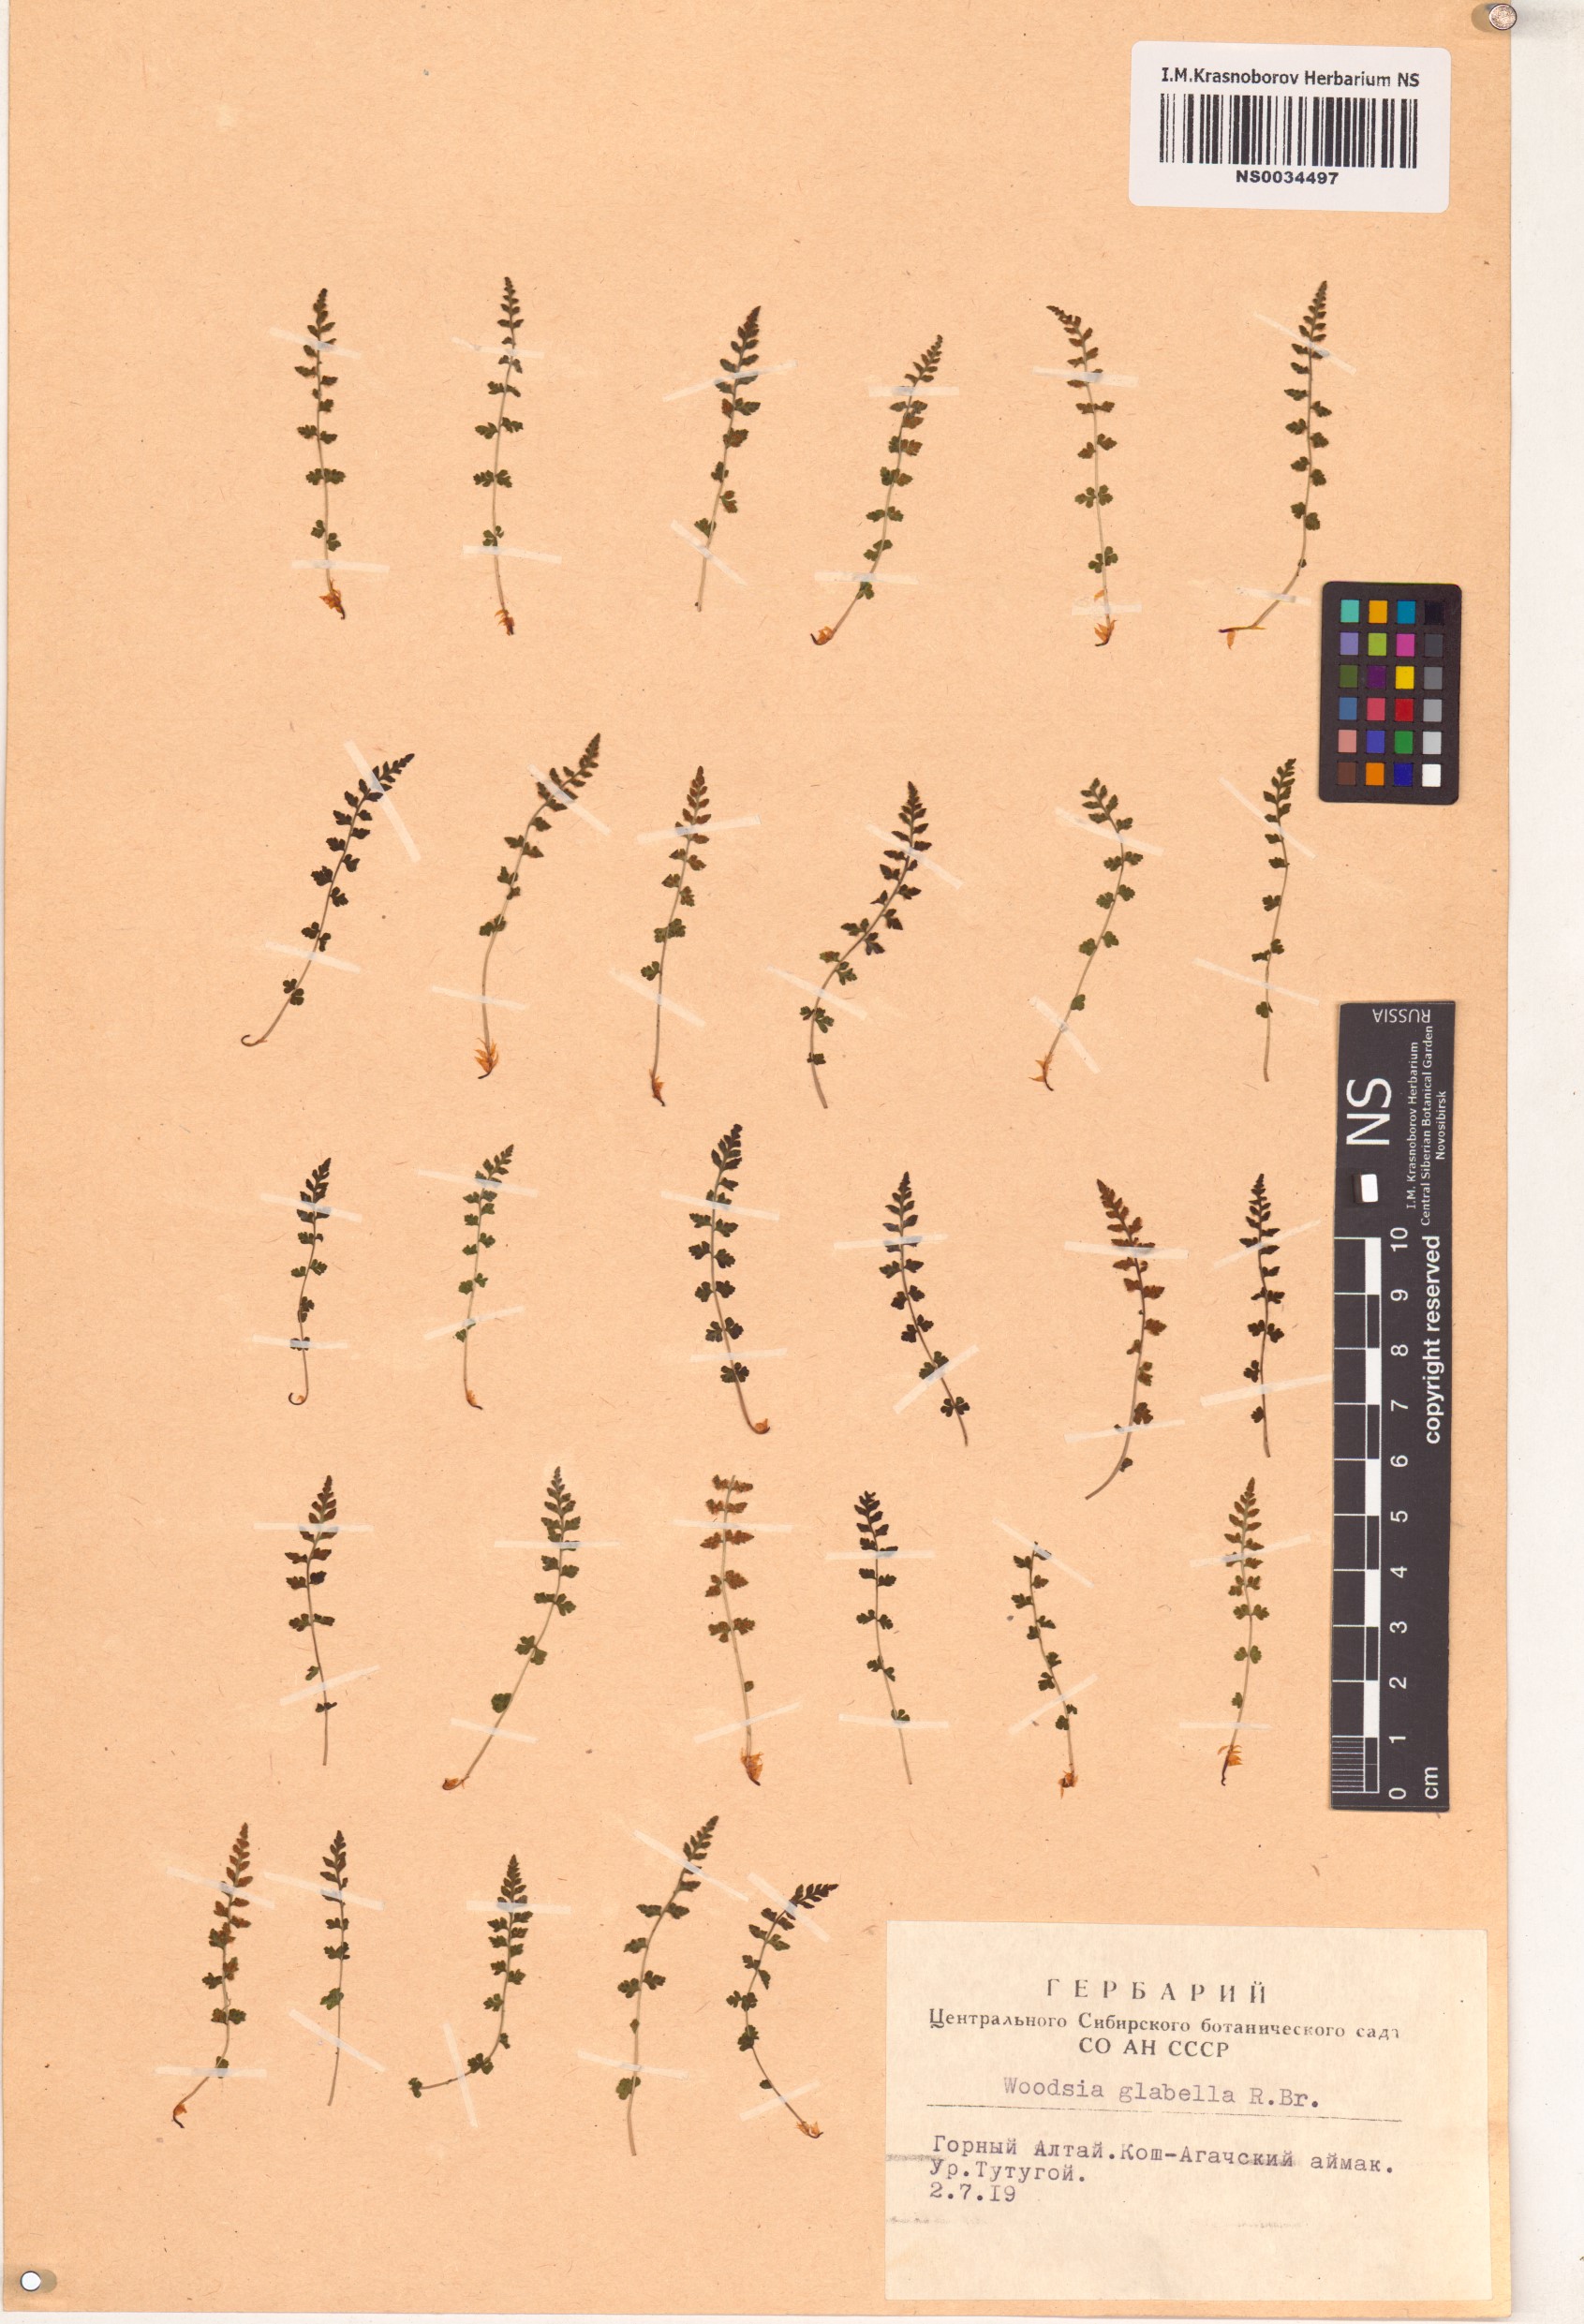 I.M.Krasnoborov Herbarium NS
NS0034497
RUSSIA
NS
I.M. Krasnoborov Herbarium
Central Siberian Botanical Garden
Novosibirsk
copyright reserved
10
9
8
7
6
5
4
3
2
1
0
cm
ГЕРБАРИЙ
Центрального Сибирского ботанического сада
СО АН СССР
Woodsia glabella R.Br.
Горный Алтай.Кош-Агачский аймак.
Ур.Тутугой.
2.7.I9